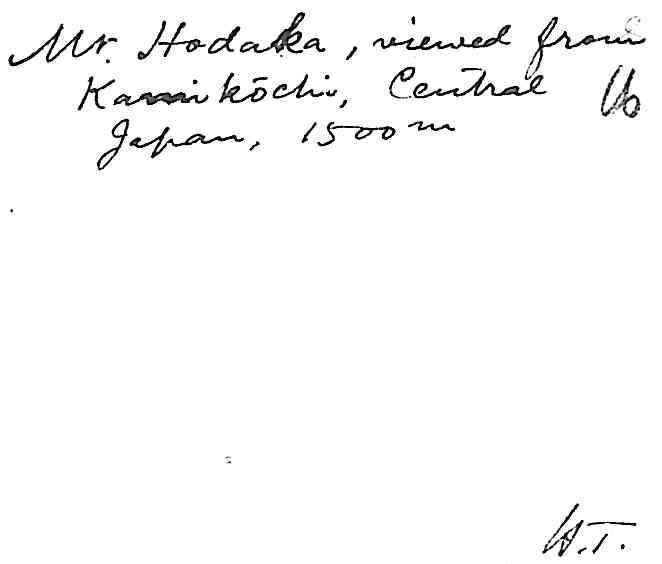 Mt. Hodaka, viewed from
Kamikōchi, Central
Japan, 1500 m
H.T.